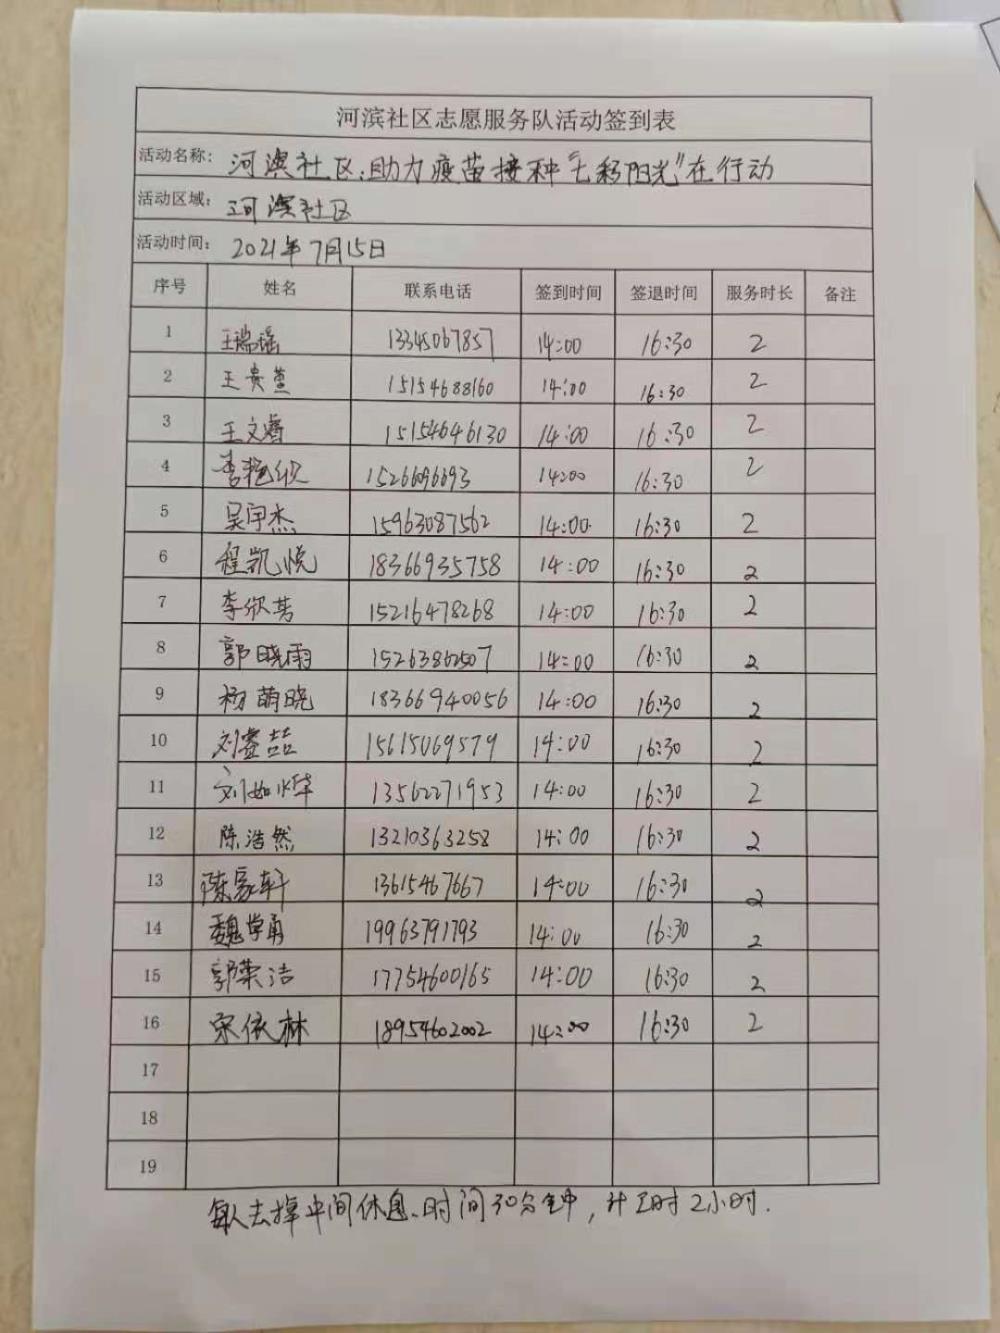 河滨社区志愿服务队活动签到表
活动名称: 河滨社区:助力疫苗接种"七彩阳光"在行动
活动区域: 河滨社区
活动时间: 2021年7月15日
序号 姓名 联系电话 签到时间 签退时间 服务时长 备注
1 王瑞瑶 13345067857 14:00 16:30 2
2 王贵萱 15154688160 14:00 16:30 2
3 王文睿 15154646130 14:00 16:30 2
4 李艳欣 14:00 16:30 2
5 吴宇杰 15963087562 14:00 16:30 2
6 程凯悦 18366935758 14:00 16:30 2
7 李欣芮 15216478268 14:00 16:30 2
8 郭晓雨 15263862507 14:00 16:30 2
9 杨萌晓 18366940056 14:00 16:30 2
10 刘睿喆 15615069579 14:00 16:30 2
11 刘如烨 13562271953 14:00 16:30 2
12 陈浩然 13210363258 14:00 16:30 2
13 陈家轩 13615467667 14:00 16:30 2
14 魏学勇 19963791793 14:00 16:30 2
15 郭荣洁 17754600165 14:00 16:30 2
16 宋依林 18954602002 14:00 16:30 2
17
18
19
每人去掉中间休息时间30分钟,计工时2小时.